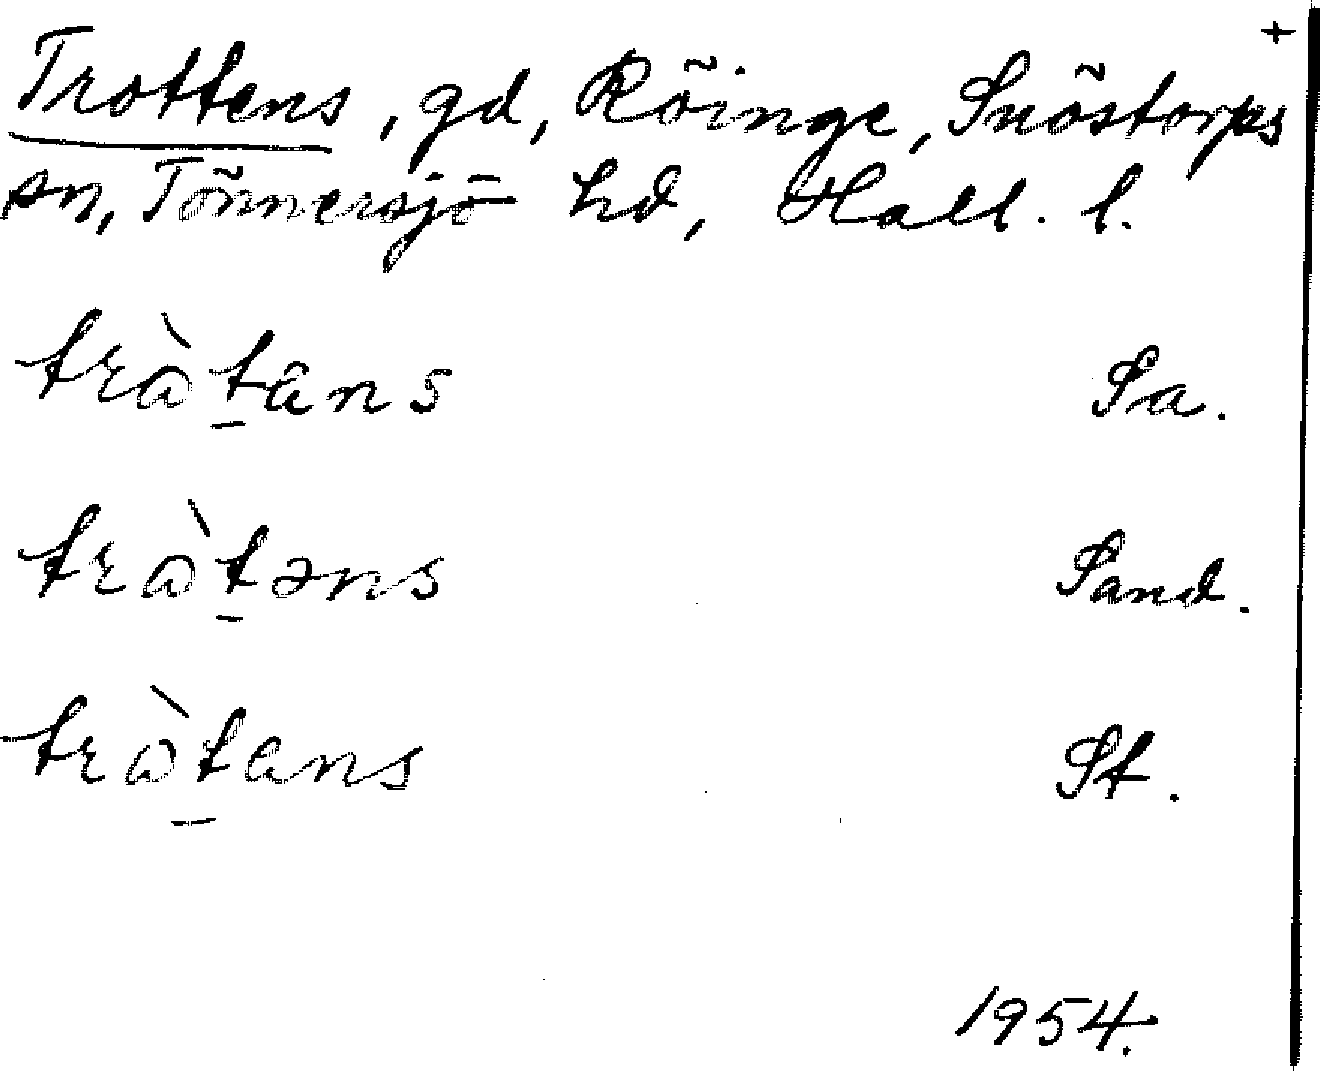 +
Trottens, gd, Röinge, Snöstorps
sn, Tönnersjö hd, Hall. l.
tràt̲âns Sa.
tràt̲əns Sand.
tràt̲ans St.
1954.